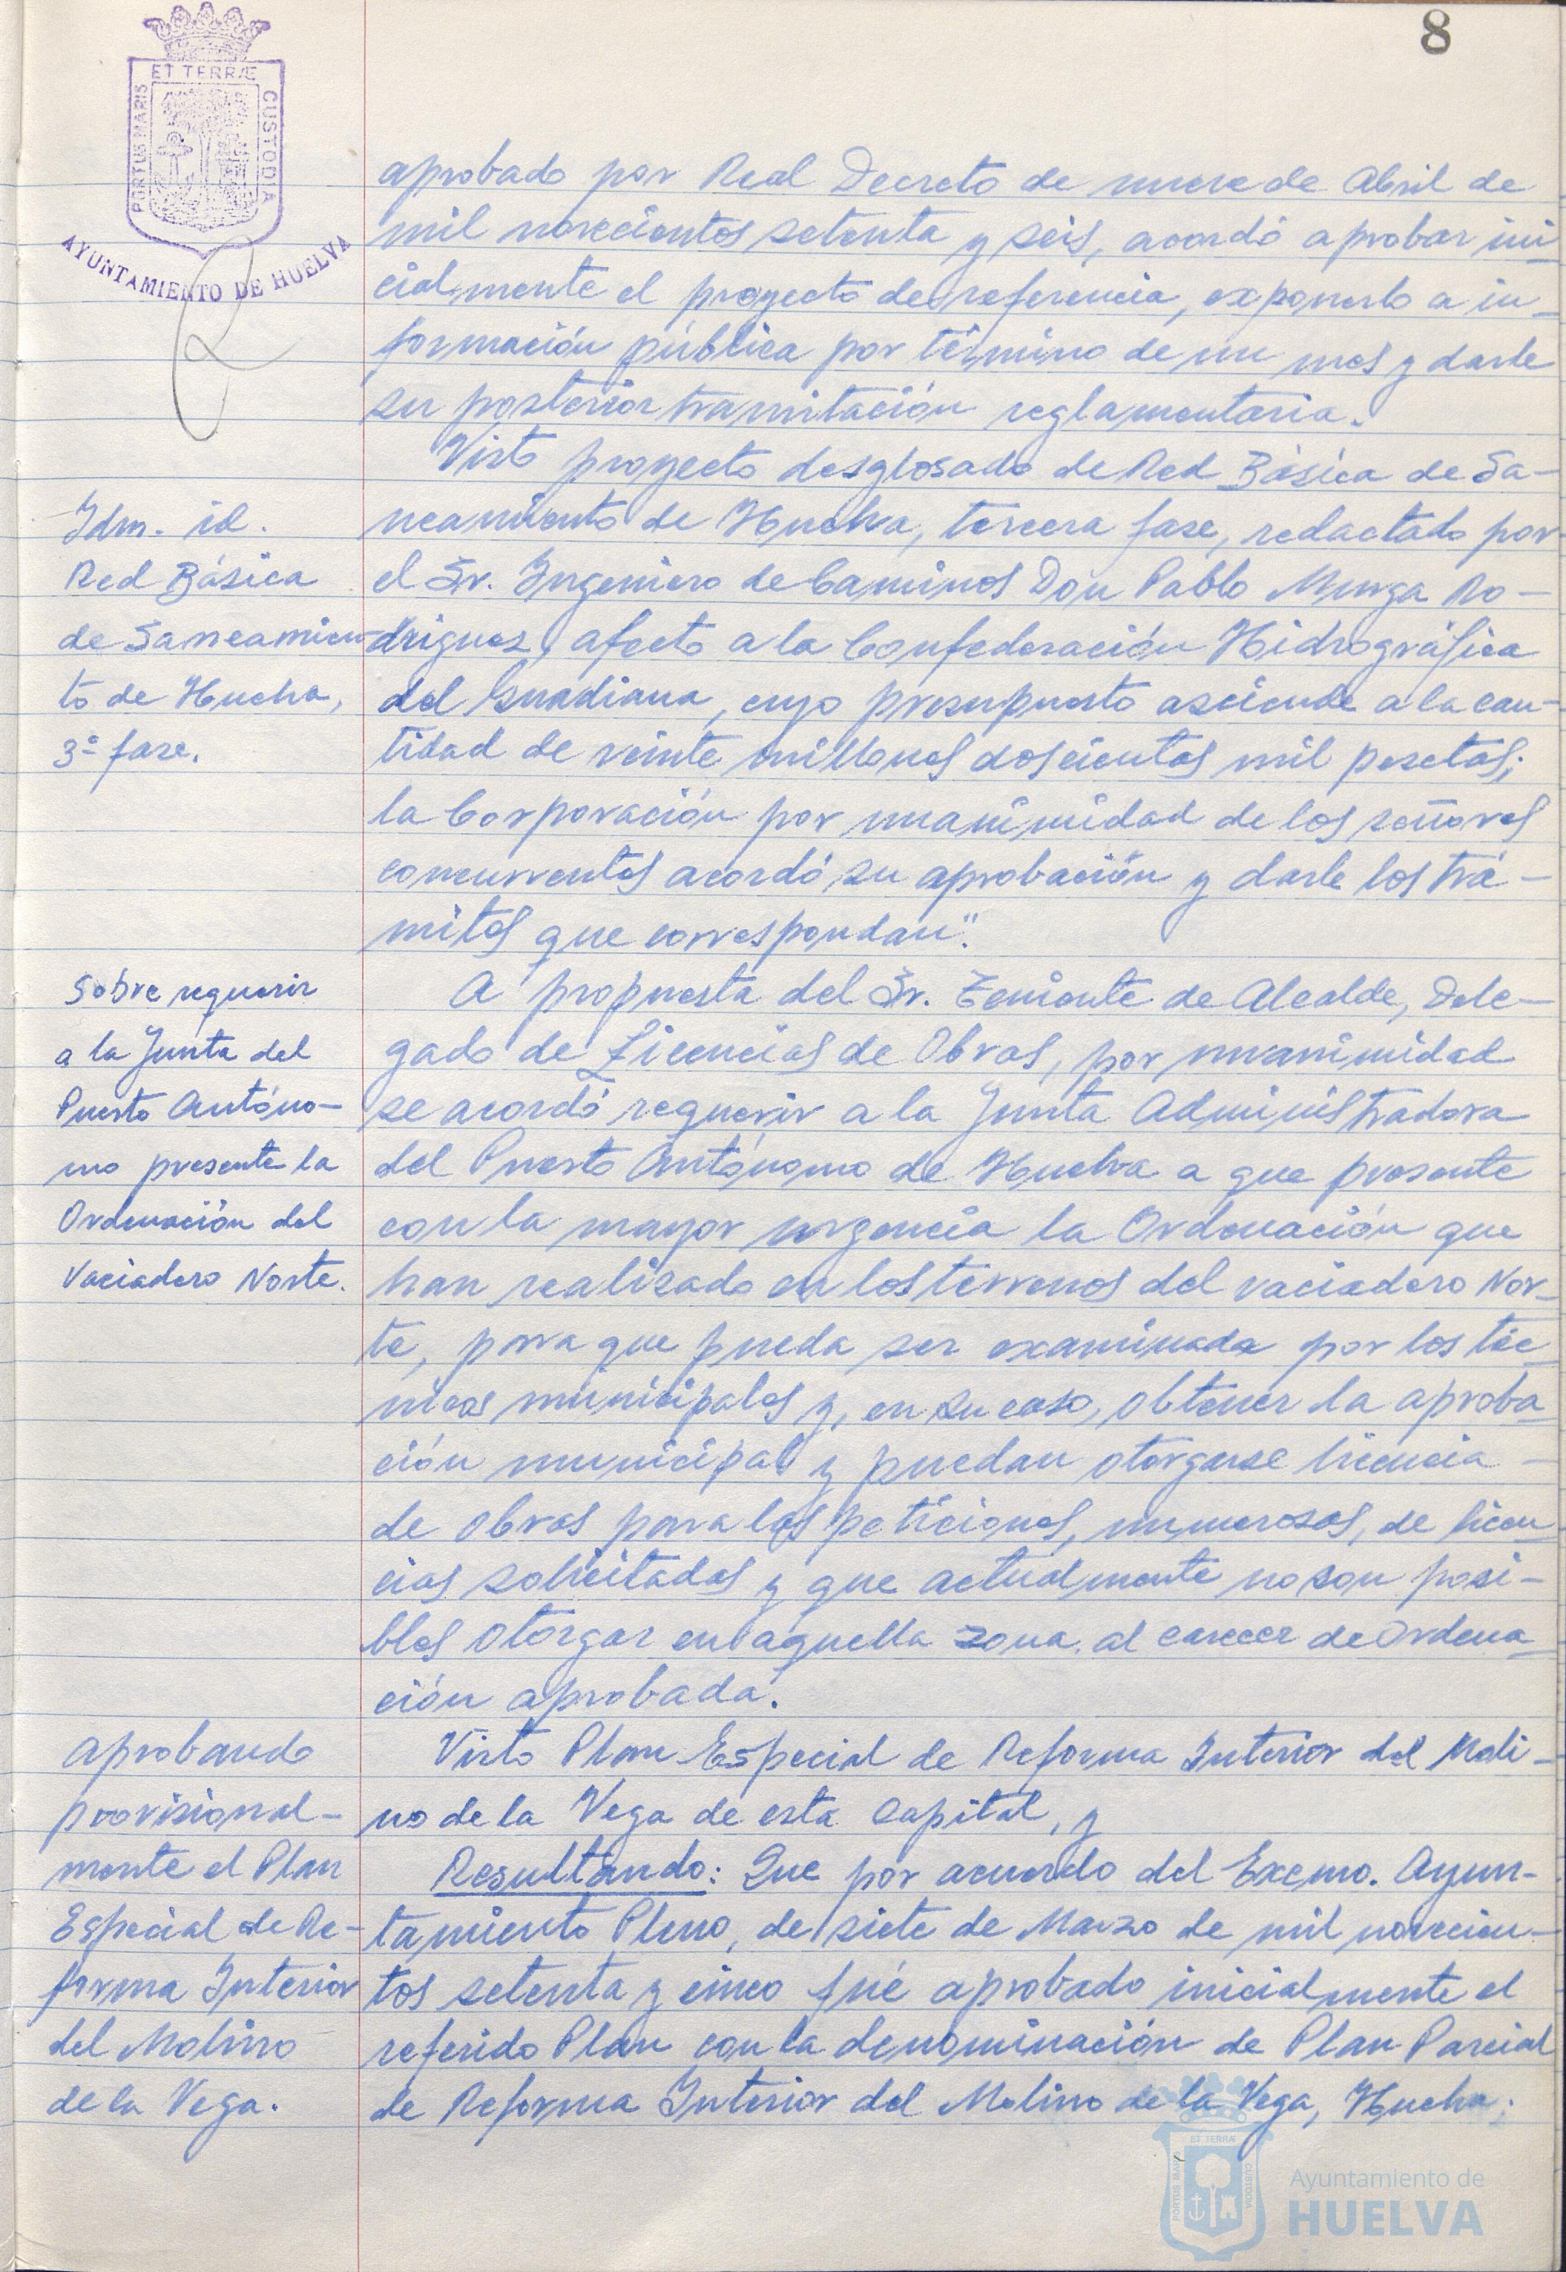 8
ET TERRÆ
PORTUS MARIS
CUSTODIA
AYUNTAMIENTO DE HUELVA
aprobado por Real Decreto de nueve de Abril de
mil novecientos setenta y seis, acordó aprobar ini-
cialmente el proyecto de referencia, exponerlo a in-
formación pública por término de un mes y darle
su posterior tramitación reglamentaria.
Idm. id.
Red Básica
de Saneamien
to de Huelva,
3ª fase.
Visto proyecto desglosado de Red Básica de Sa-
neamiento de Huelva, tercera fase, redactado por
el Sr. Ingeniero de Caminos Don Pablo Munga Ro-
driguez, afecto a la Confederación Hidrográfica
del Guadiana, cuyo presupuesto asciende a la can-
tidad de veinte millones doscientas mil pesetas;
la Corporación por unanimidad de los señores
concurrentes acordó su aprobación y darle los trá-
mites que correspondan".
Sobre requerir
a la Junta del
Puerto Autóno-
mo presente la
Ordenación del
Vaciadero Norte.
A propuesta del Sr. Teniente de Alcalde, Dele-
gado de Licencias de Obras, por unanimidad
se acordó requerir a la Junta Administradora
del Puerto Autónomo de Huelva a que presente
con la mayor urgencia la Ordenación que
han realizado en los terrenos del vaciadero Nor-
te, para que pueda ser examinada por los téc
nicos municipales y, en su caso, obtener la aproba-
ción municipal y puedan otorgarse licencia -
de obras para las peticiones, numerosas, de licen
cias solicitadas y que actualmente no son posi-
bles otorgar en aquella zona al carecer de Ordena-
ción aprobada.
Aprobando
provisional-
mente el Plan
Especial de Re-
forma Interior
del Molino
de la Vega.
Visto Plan Especial de Reforma Interior del Moli-
no de la Vega de esta Capital, y
Resultando: Que por acuerdo del Excmo. Ayun-
tamiento Pleno, de siete de Marzo de mil novecien-
tos setenta y cinco fué aprobado inicialmente el
referido Plan con la denominación de Plan Parcial
de Reforma Interior del Molino de la Vega, Huelva;
ET TERRÆ
PORTUS MARIS
CUSTODIA
Ayuntamiento de
HUELVA